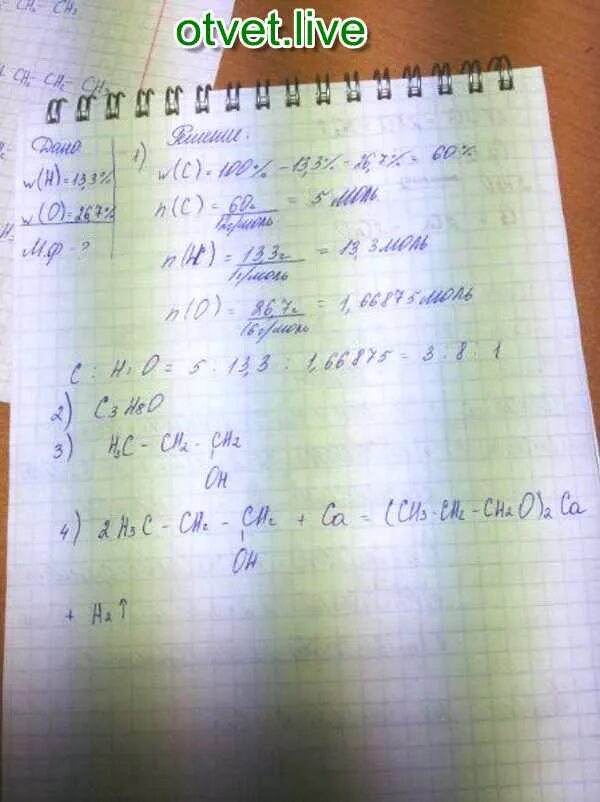 otvet.live
CH2 CH3
CH2 - CH2 - CH3
Дано
w(H)=13,3%
w(O)=26,7%
М.Ф - ?
Решение.
1) w(C) = 100% - 13,3% - 26,7% = 60%
n(C) = 60г / 12г/моль = 5 моль
n(H) = 13,3г / 1г/моль = 13,3моль
n(O) = 26,7г / 16г/моль = 1,66875моль
C : H : O = 5 : 13,3 : 1,66875 = 3 : 8 : 1
2) C3H8O
3) H3C - CH2 - CH2
OH
4) 2H3C - CH2 - CH2 + Ca = (CH3-CH2-CH2O)2Ca
OH
+ H2↑